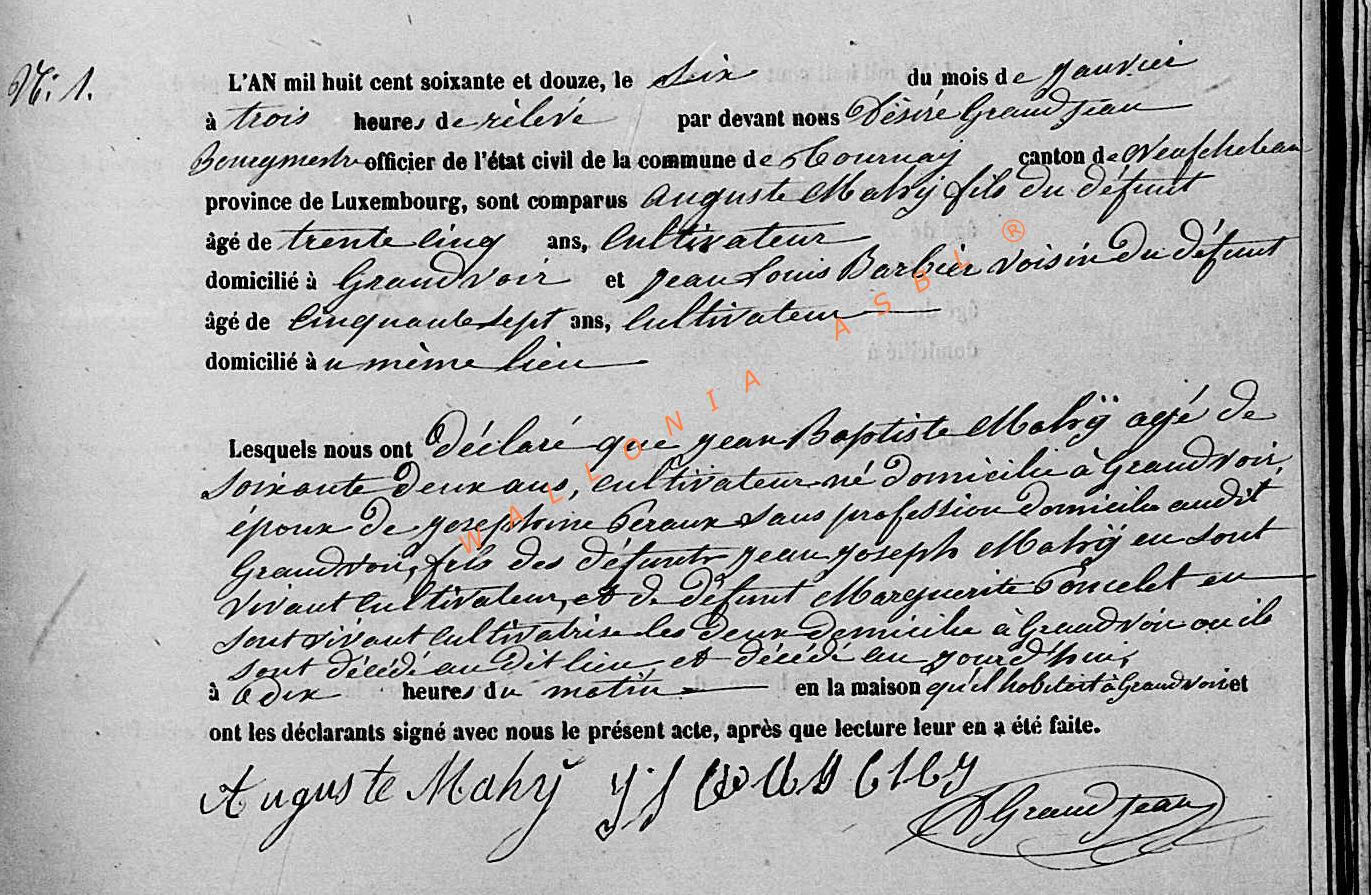 N: 1.
L'AN mil huit cent soixante et douze, le six du mois de janvier
à trois heures de rélevé par devant nous Désiré Grandjean
Bourgmestre officier de l'état civil de la commune de Tournay canton de Neufchateau
province de Luxembourg, sont comparus Auguste Mahÿ fils du défunt
âgé de trente cinq ans, Cultivateur
domicilié à Grandvoir et Jean Louis Barbier voisin du défunt
âgé de Cinquante sept ans, Cultivateur
domicilié à u même lieu
Lesquels nous ont Déclaré que Jean Baptiste Mahÿ agé de
soixante deux ans, cultivateur né domicilie à Grandvoir,
époux de Josephine Peraux sans profession domicilie audit
Grandvoir, fils des défunts Jean Joseph Mahÿ en sont
vivant Cultivateur, et de défunt Marguerite Poncelet en
sont vivant Cultivatrise les deux domicilie à Grandvoir ou ils
sont décédé au dit lieu, et décédé au jourd'hui,
à dix heures du matin en la maison qu'il habitoit à Grandvoir et
ont les déclarants signé avec nous le présent acte, après que lecture leur en a été faite.
Auguste Mahÿ
D Grandjean
WALLONIA ASBL ®